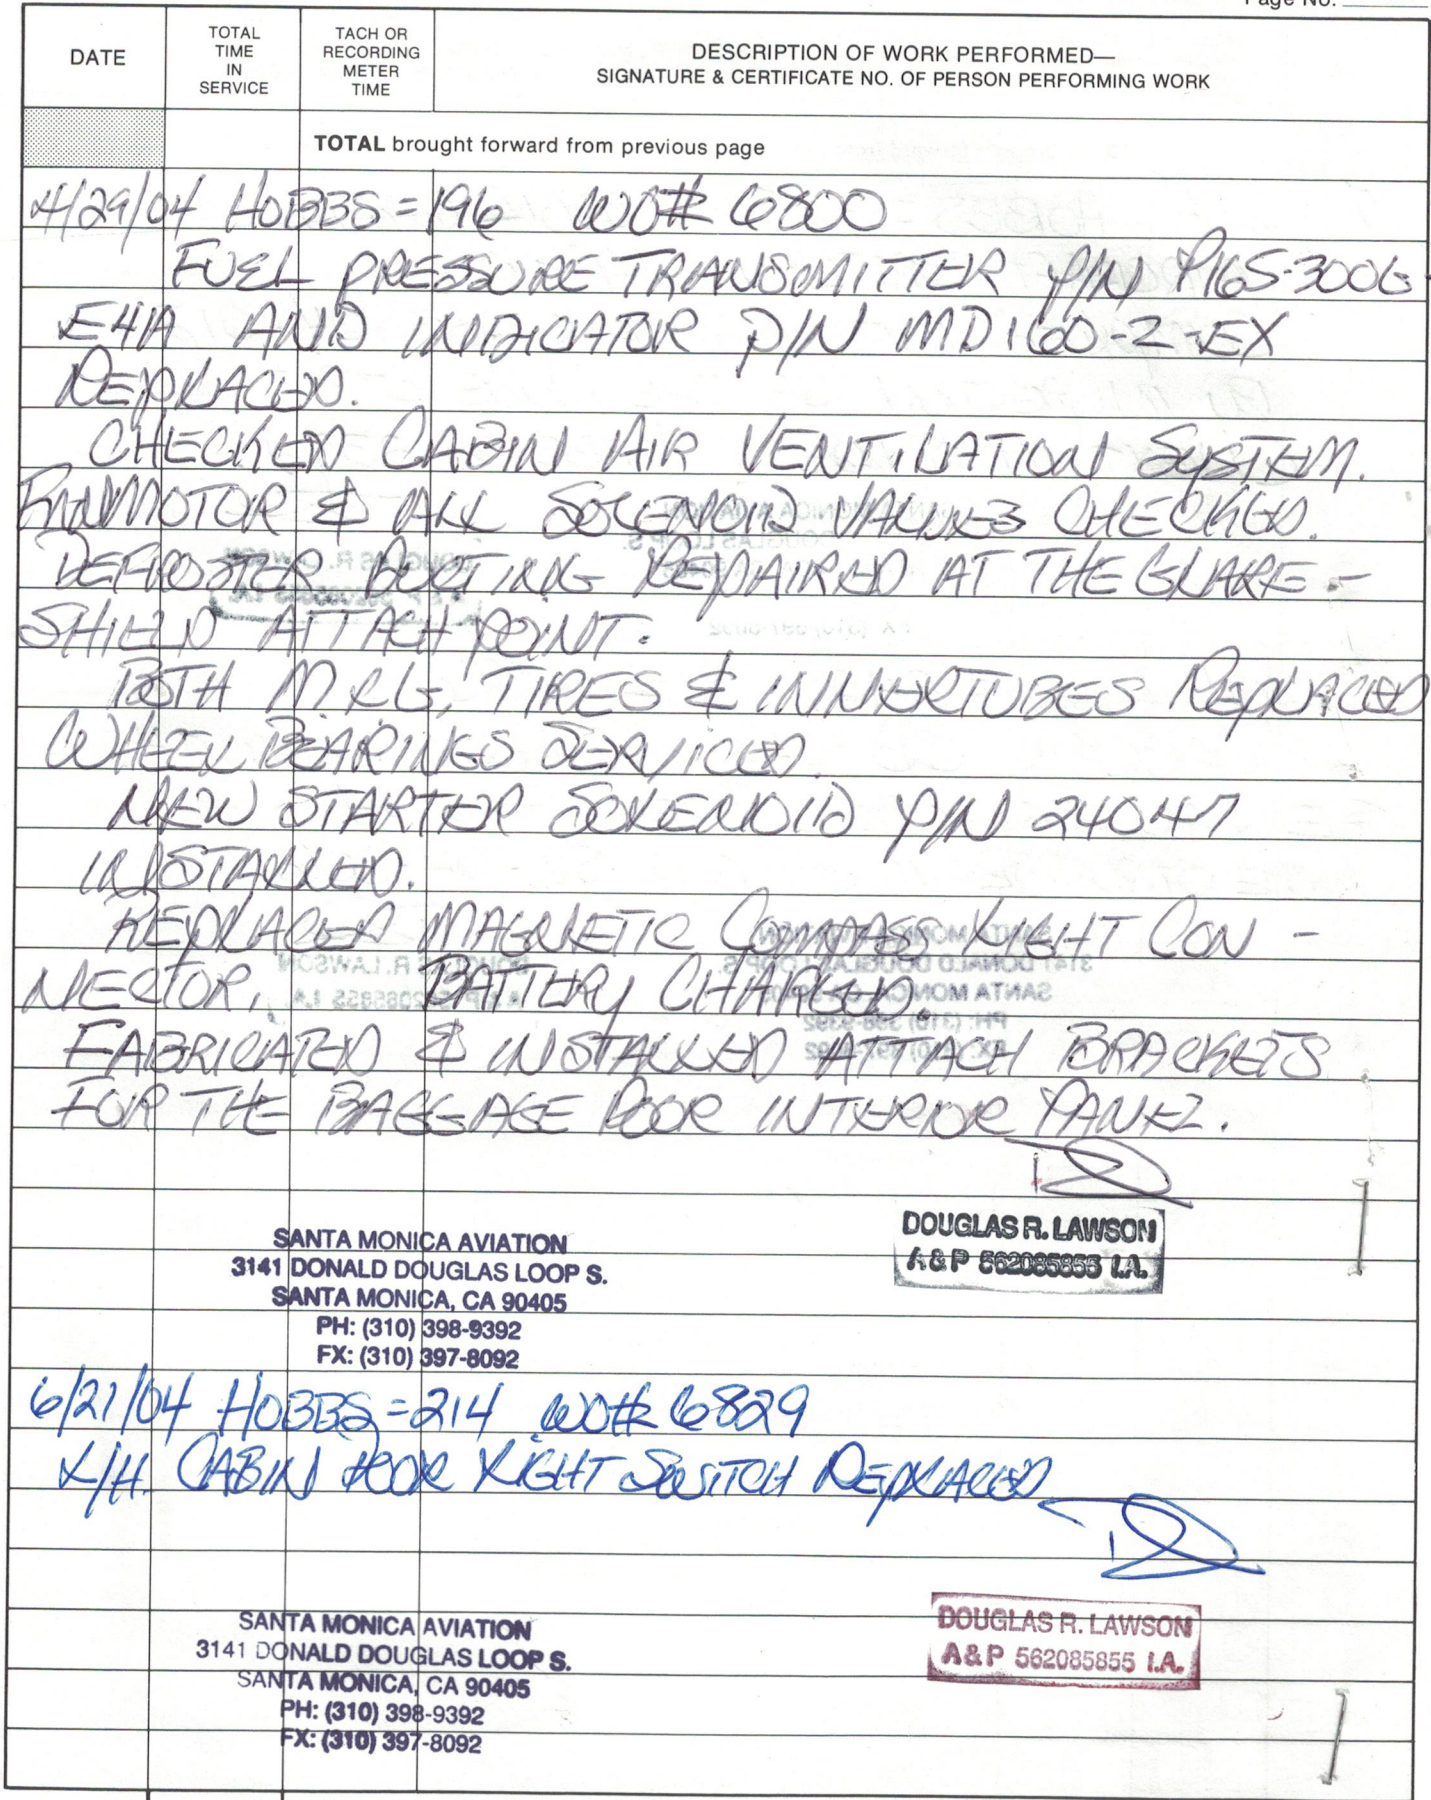 Page No.
DATE
TOTAL TIME IN SERVICE
TACH OR RECORDING METER TIME
DESCRIPTION OF WORK PERFORMED—
SIGNATURE & CERTIFICATE NO. OF PERSON PERFORMING WORK
TOTAL brought forward from previous page
4/29/04 HOBBS=196 WO# 6800
FUEL PRESSURE TRANSMITTER P/N P165-3006-
E4A AND INDICATOR P/N MD160-2-EX
REPLACED.
CHECKED CABIN AIR VENTILATION SYSTEM.
FANMOTOR & ALL SOLENOID VALVES CHECKED.
DEFROSTER DUCTING REPAIRED AT THE GLARE-
SHIELD ATTACH POINT.
BOTH M.L.G. TIRES & INNERTUBES REPLACED
WHEEL BEARINGS SERVICED.
NEW STARTER SOLENOID P/N 24047
INSTALLED.
REPLACED MAGNETIC COMPASS LIGHT CON-
NECTOR, BATTERY CHARGED.
FABRICATED & INSTALLED ATTACH BRACKETS
FOR THE BAGGAGE DOOR INTERIOR PANEL.
SANTA MONICA AVIATION
3141 DONALD DOUGLAS LOOP S.
SANTA MONICA, CA 90405
PH: (310) 398-9392
FX: (310) 397-8092
DOUGLAS R. LAWSON
A&P 562085855 I.A.
6/21/04 HOBBS=214 WO# 6829
L/H. CABIN DOOR LIGHT SWITCH REPLACED
SANTA MONICA AVIATION
3141 DONALD DOUGLAS LOOP S.
SANTA MONICA, CA 90405
PH: (310) 398-9392
FX: (310) 397-8092
DOUGLAS R. LAWSON
A&P 562085855 I.A.